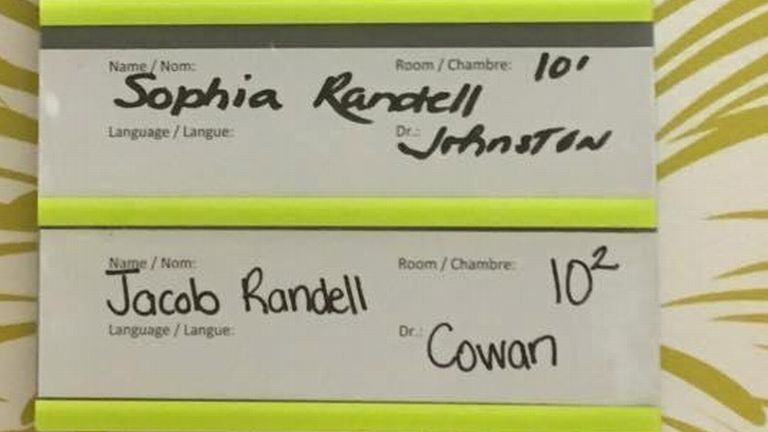 Name / Nom: Room / Chambre: 10¹
Sophia Randell
Language / Langue: Dr.: Johnston
Name / Nom: Room / Chambre: 10²
Jacob Randell
Language / Langue: Dr.: Cowan